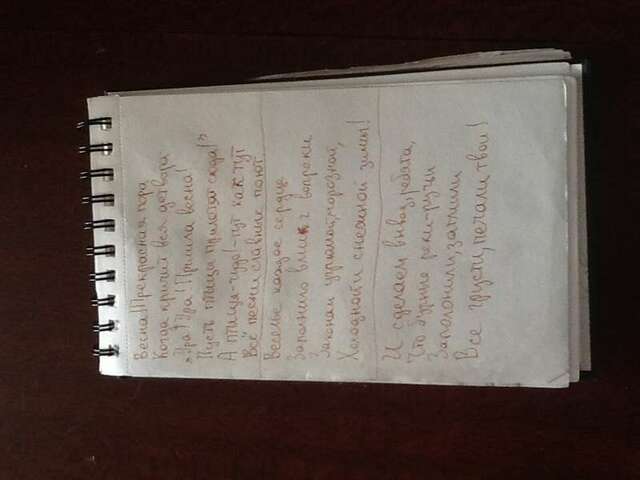 Весна! Прекрасная пора
Когда кричит вся детвора
"Ура! Ура! Пришла весна!
Пусть птицы прилетят сюда!"
А птицы-чудо!-тут как тут
Всё песни славные поют
Веселье каждое сердце
Заполнило вмиг вопреки
Законам угрюмой, морозной,
Холодной и снежной зимы!
И сделаем вывод, ребята,
Что бурные реки-ручьи
Заполонили, затмили
Все грусти, печали твои!